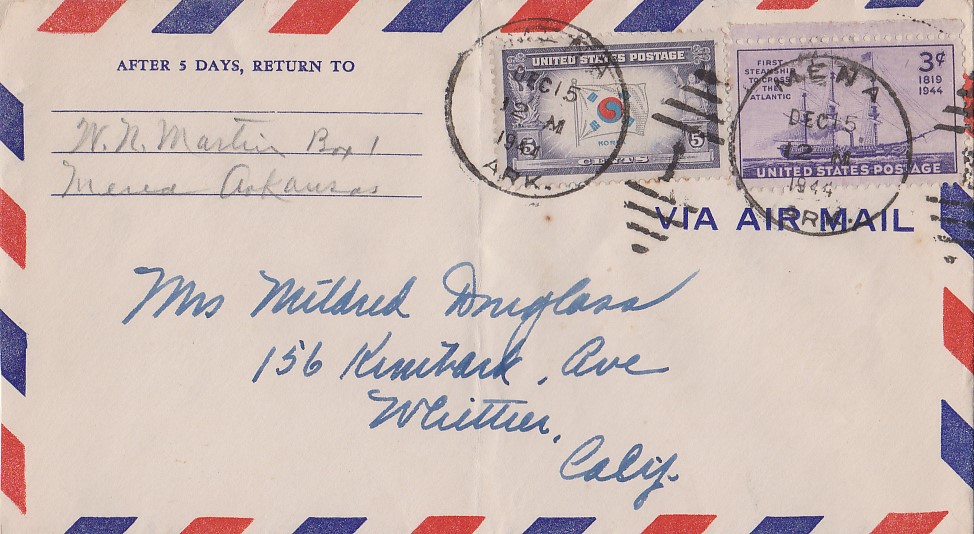 AFTER 5 DAYS, RETURN TO
W. N. Martin Box 1
Mena Arkansas
UNITED STATES POSTAGE
KOREA
5 CENTS 5
MENA
DEC 15
12 M
1944
ARK.
FIRST
STEAMSHIP
TO CROSS
THE
ATLANTIC
3¢
1819
1944
UNITED STATES POSTAGE
MENA
DEC 15
12 M
1944
ARK.
VIA AIR MAIL
Mrs Mildred Douglass
156 Kimbark, Ave
Whittier,
Calif.